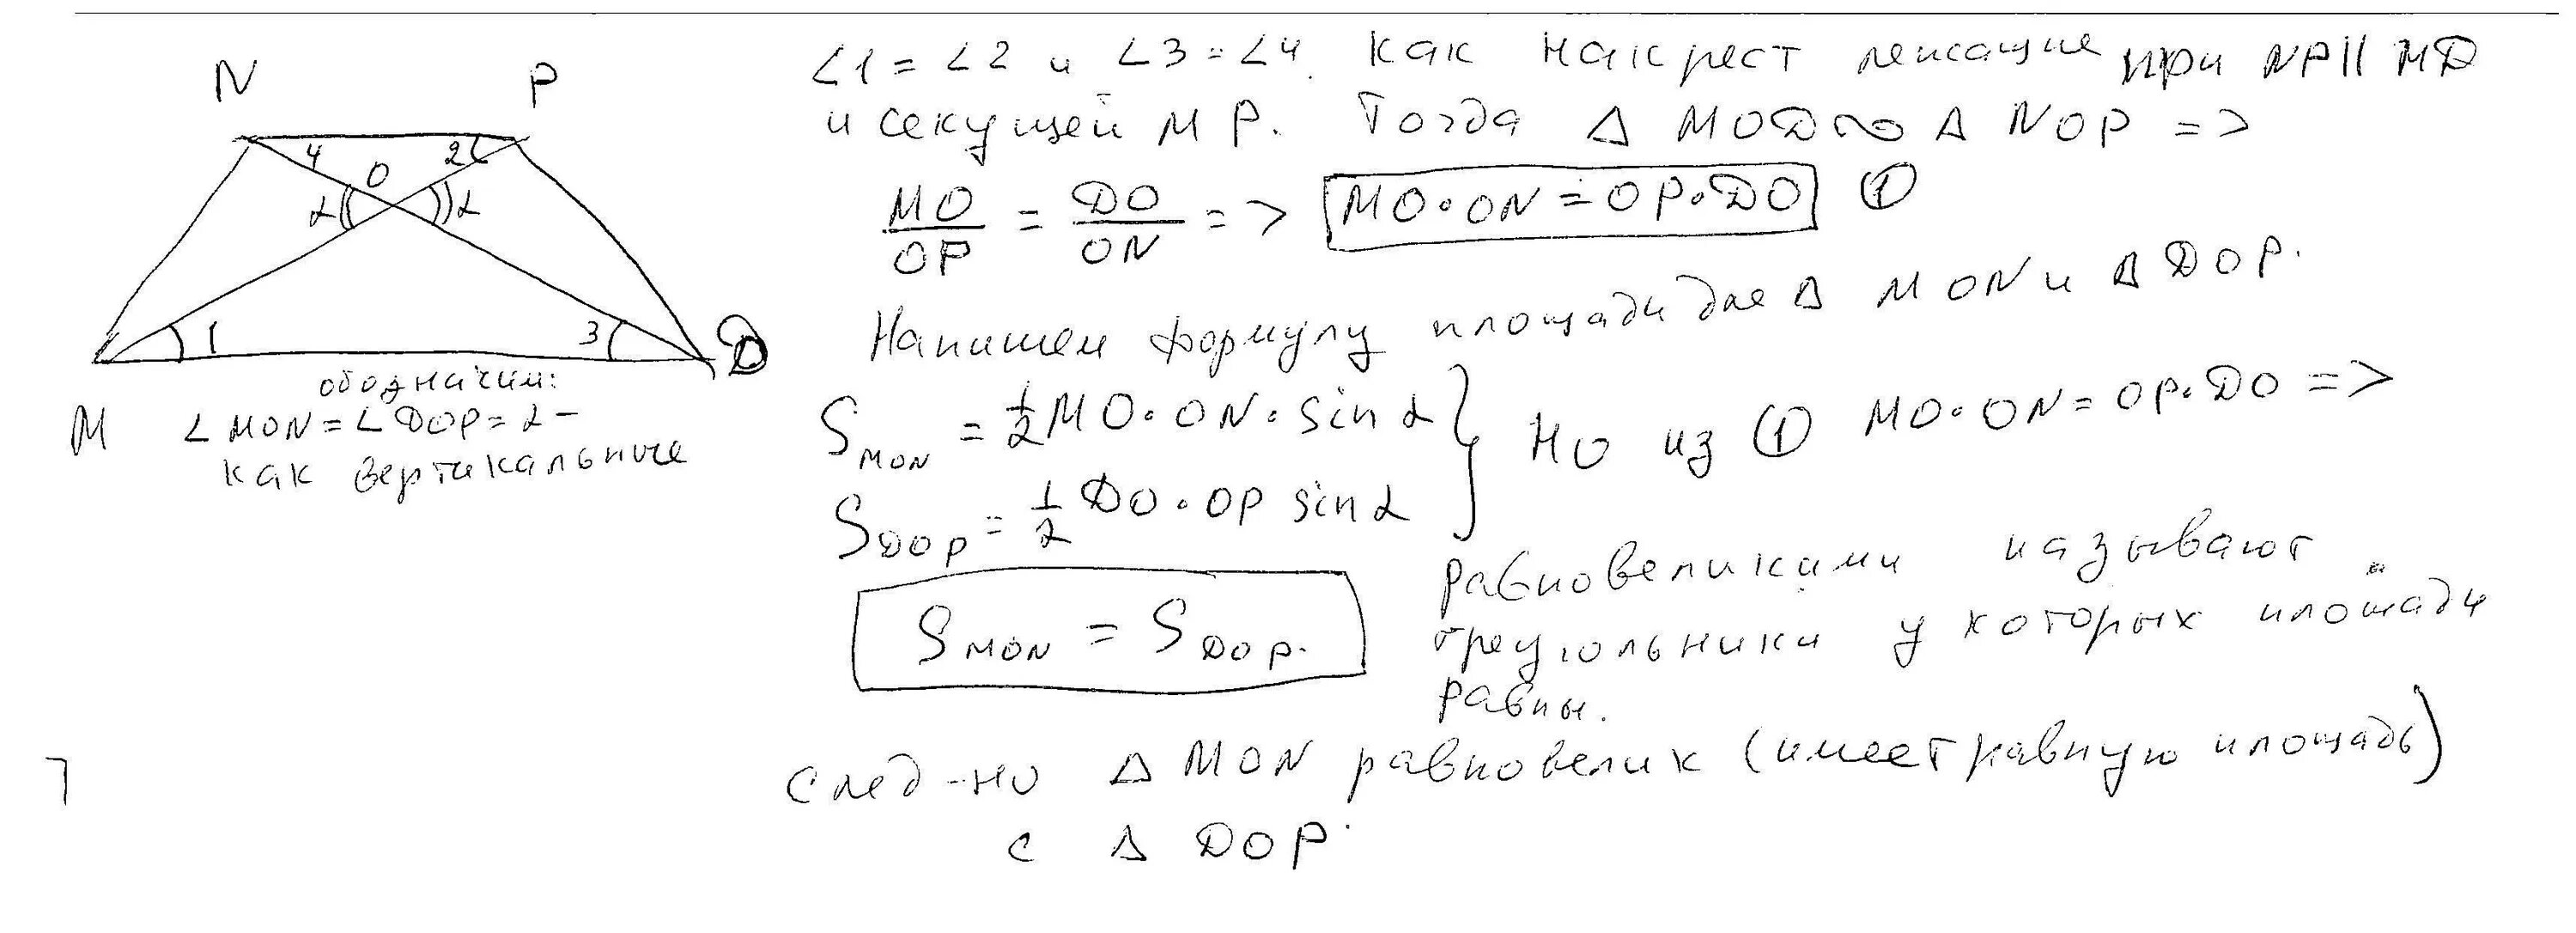 N P
4 2
O
α α
1 3
M D
обозначим:
∠MON = ∠DOP = α –
как вертикальные
∠1 = ∠2 и ∠3 = ∠4. как накрест лежащие при NP || MD
и секущей MP. Тогда Δ MOD ∾ Δ NOP =>
MO/OP = DO/ON => MO·ON = OP·DO ①
Напишем формулу площади для Δ MON и Δ DOP.
S_MON = 1/2 MO·ON·sin α } Но из ① MO·ON = OP·DO =>
S_DOP = 1/2 DO·OP sin α
S_MON = S_DOP.
равновеликими называют
треугольники у которых площади
равны.
след-но Δ MON равновелик (имеет равную площадь)
с Δ DOP.